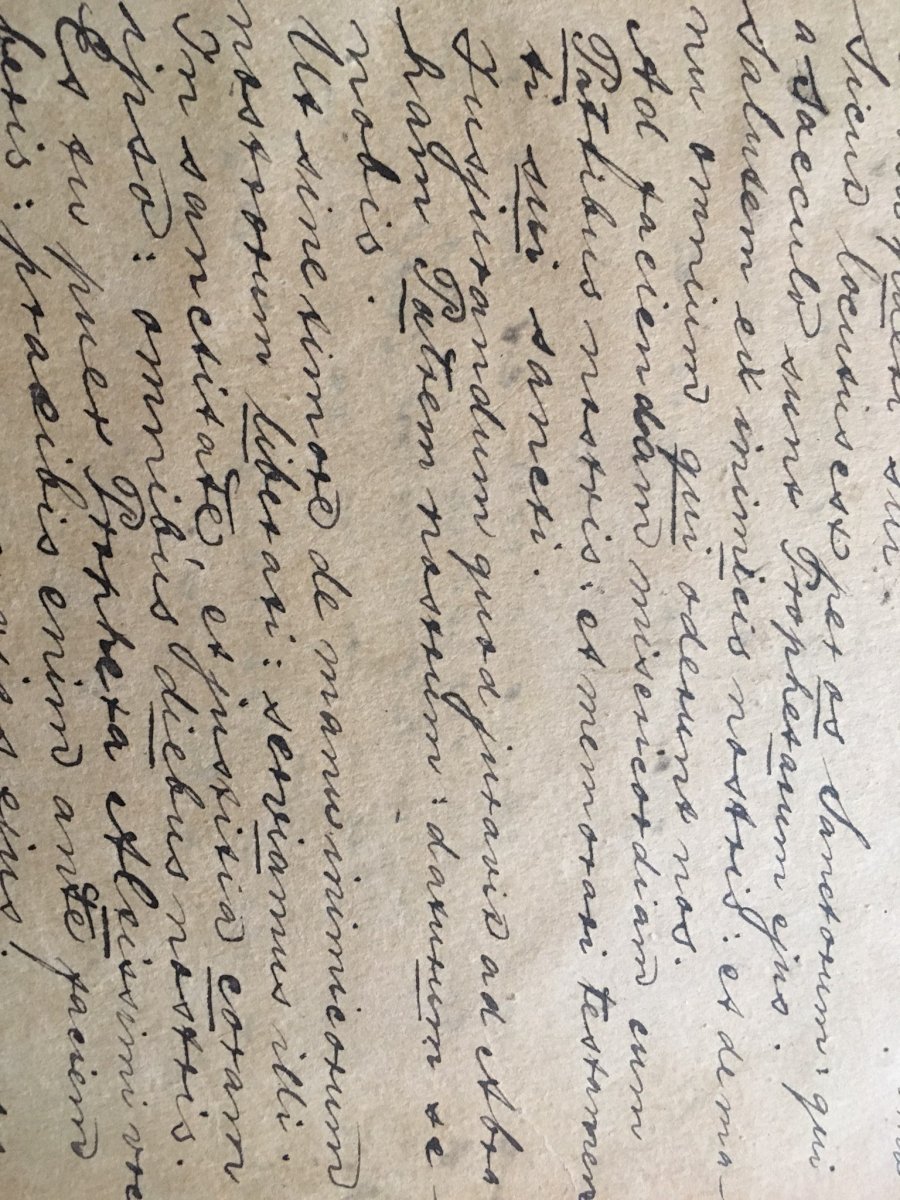 sui.
Sicut locutus est per os Sanctorum: qui
a saeculo sunt Prophetarum ejus.
Salutem ex inimicis nostris: et de ma-
nu omnium qui oderunt nos.
Ad faciendam misericordiam cum
Patribus nostris: et memorari testamen
ti sui sancti.
Jusjurandum quod juravit ad Abra
ham Patrem nostrum: daturum se
nobis.
Ut sine timore de manu inimicorum
nostrorum liberati: serviamus illi.
In sanctitate et justitia coram
ipso: omnibus diebus nostris.
Et tu puer Propheta Altissimi voca
beris: praeibis enim ante faciem